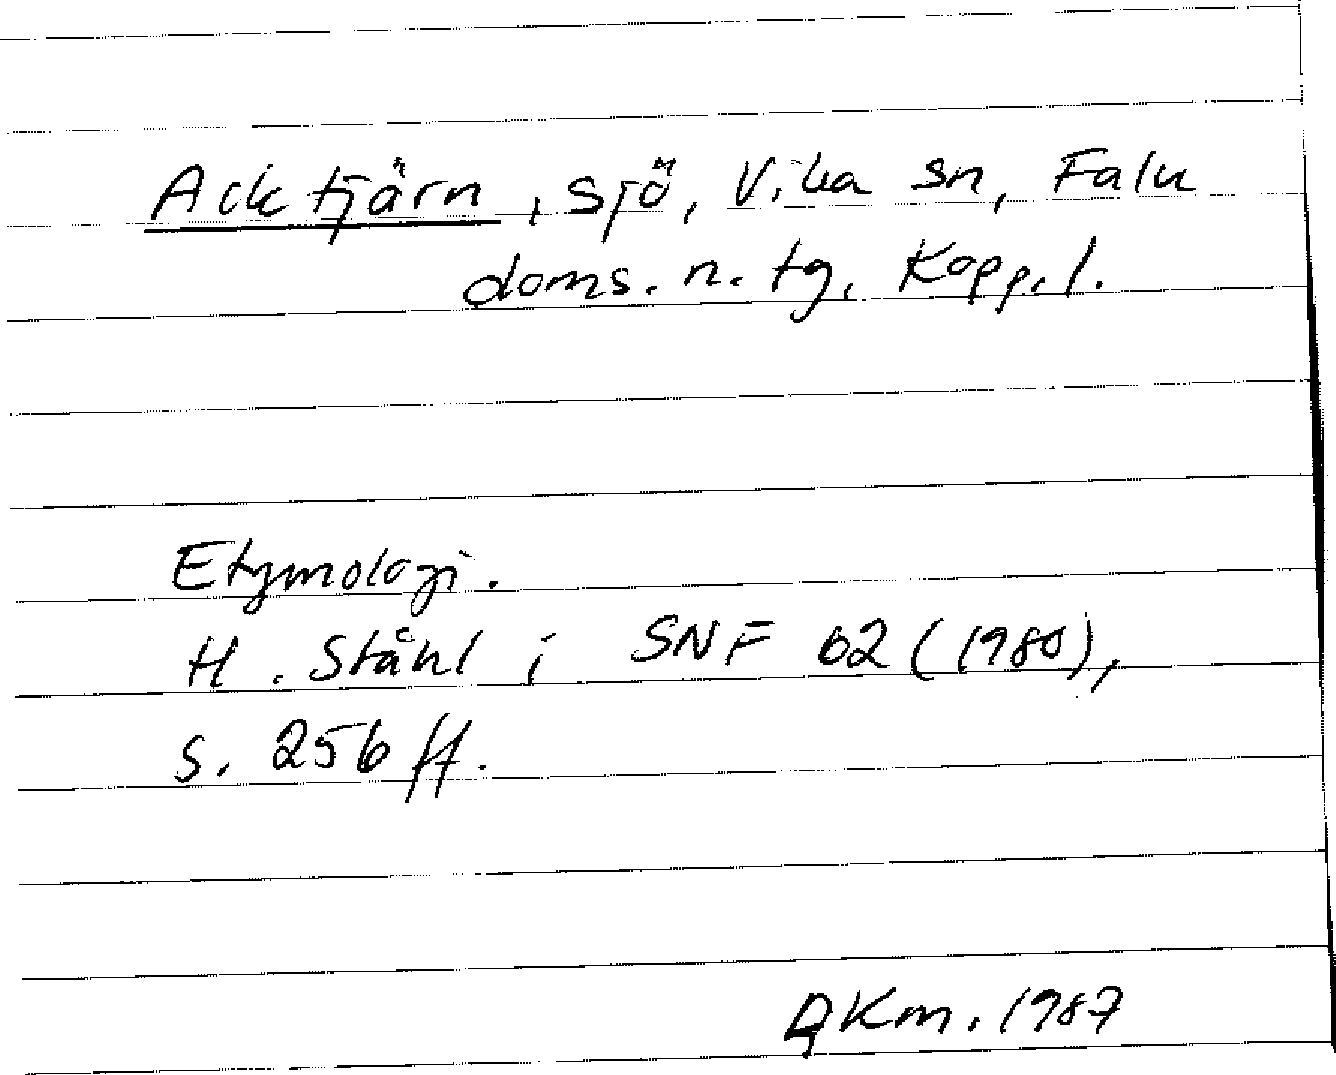 Acktjärn, sjö, Vika sn, Falu
doms. n. tg, Kopp. l.
Etymologi.
H. Ståhl i SNF 62 (1980),
s. 256 ff.
Km. 1987